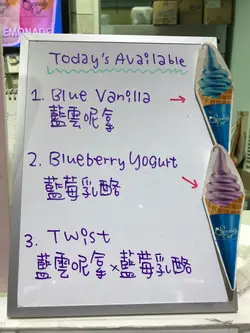 LEMONADE
Today's Available
1. Blue Vanilla
藍雲呢拿
2. Blueberry Yogurt
藍莓乳酪
3. Twist
藍雲呢拿 x 藍莓乳酪